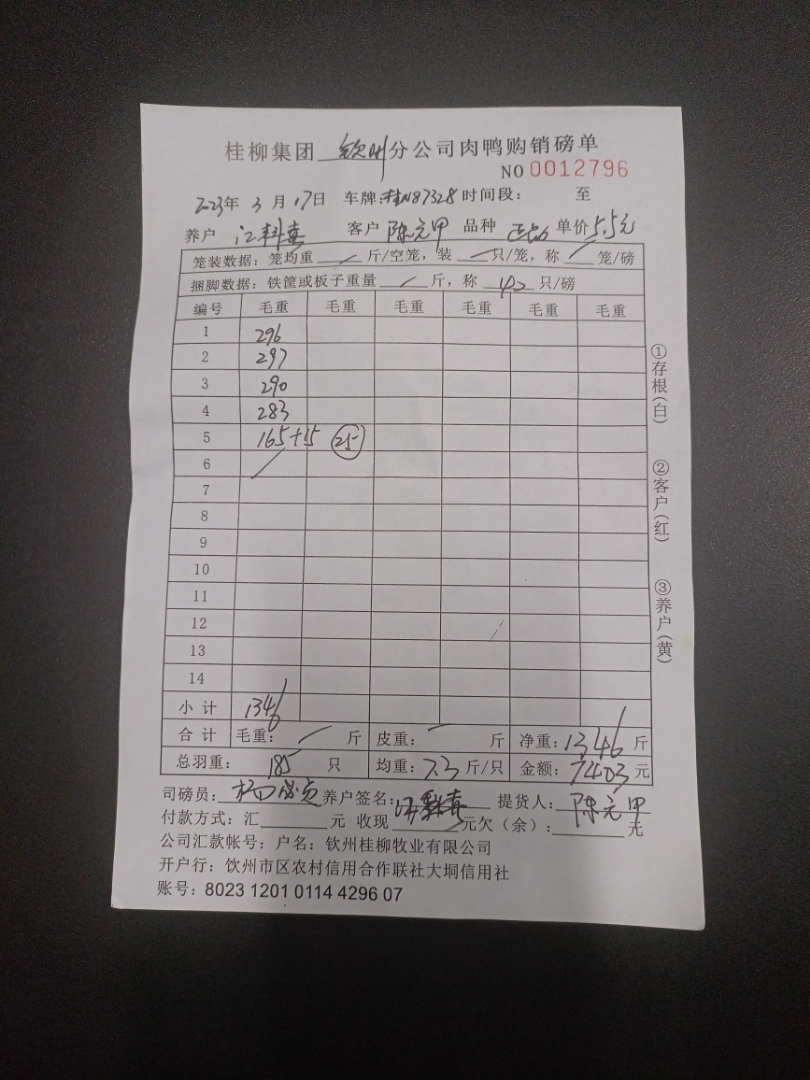 桂柳集团 钦州 分公司肉鸭购销磅单
NO 0012796
2023年 3 月 17日 车牌:桂N87328 时间段: 至
养户 客户 陈元甲 品种 单价 5.5元
笼装数据:笼均重 / 斤/空笼,装 / 只/笼,称 / 笼/磅
捆脚数据:铁筐或板子重量 / 斤,称 42 只/磅
编号 毛重 毛重 毛重 毛重 毛重 毛重
1 296
2 297
3 290
4 283
5 165+15 25
6 /
7
8
9
10
11
12
13
14
小计 1346
合计 毛重: / 斤 皮重: 斤 净重:1346 斤
总羽重: 185 只 均重:7.3 斤/只 金额:7403 元
司磅员: 养户签名: 提货人: 陈元甲
付款方式:汇 元 收现 元欠(余): 元
公司汇款帐号:户名:钦州桂柳牧业有限公司
开户行:钦州市区农村信用合作联社大垌信用社
账号:8023 1201 0114 4296 07
①存根(白)
②客户(红)
③养户(黄)